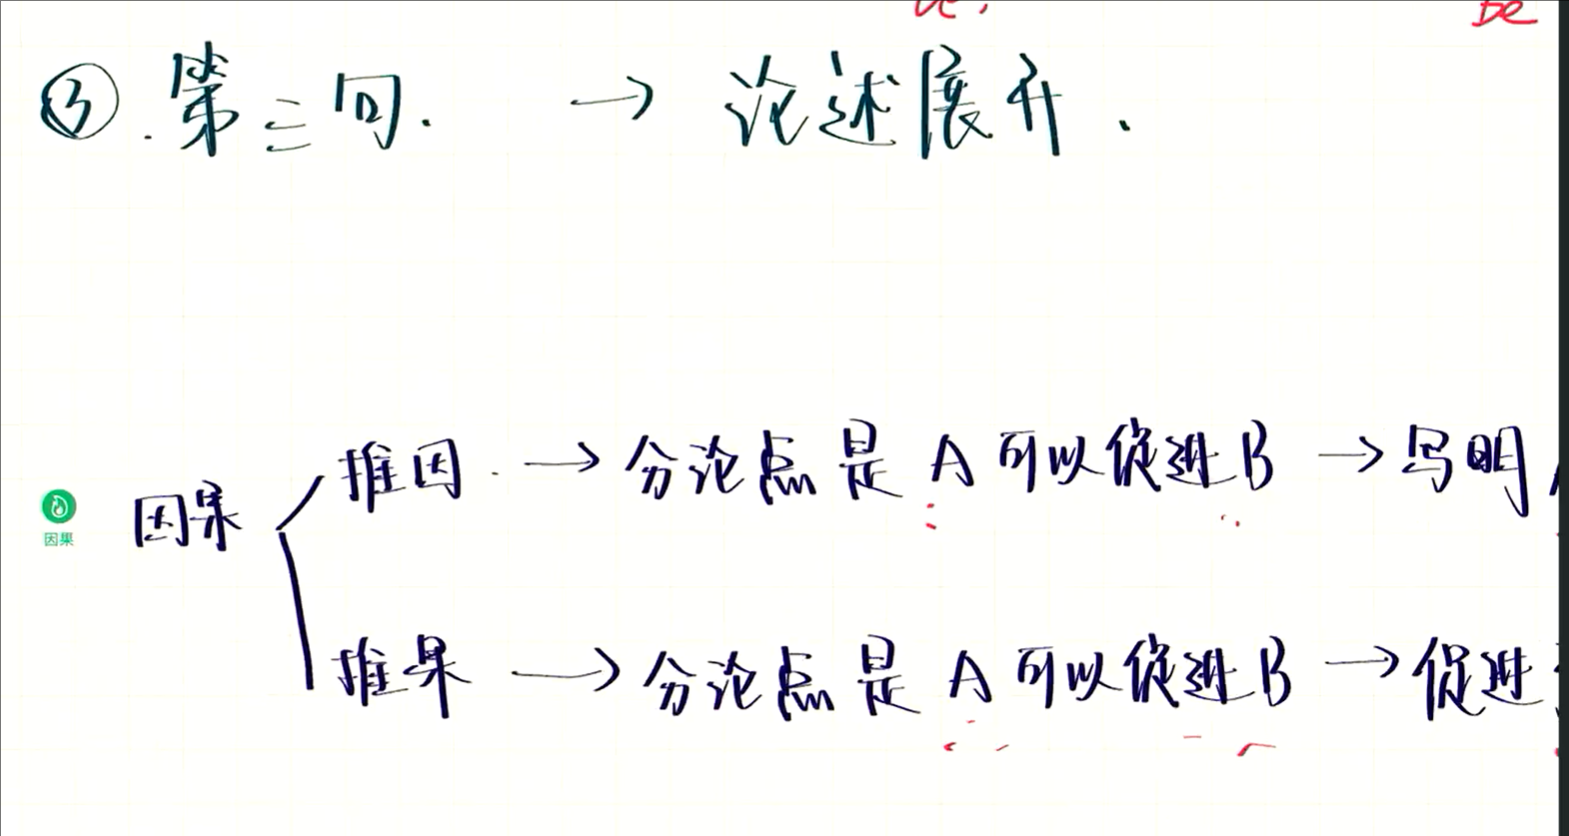 ③.第三句. → 论述展开.
推因. → 分论点是 A 可以促进 B → 写明
因果
因果
推果 → 分论点是 A 可以促进 B → 促进